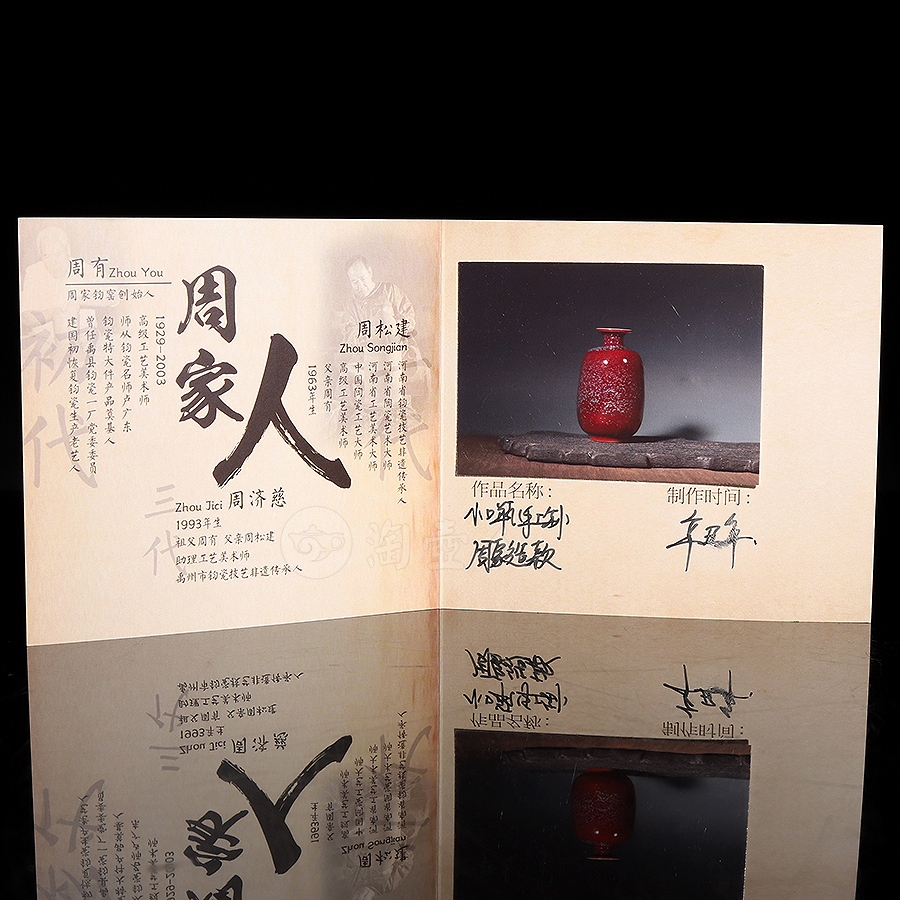 周有 Zhou You
周家钧窑创始人
1929-2003
高级工艺美术师
师从钧瓷名师卢广东
钧瓷特大件产品奠基人
曾任禹县钧瓷一厂党委委员
建国初恢复钧瓷生产老艺人
初代
周家人
周松建
Zhou Songjian
河南省钧瓷技艺非遗传承人
河南省陶瓷艺术大师
河南省工艺美术大师
中国陶瓷工艺大师
高级工艺美术师
父亲周有
1963年生
三代
Zhou Jici 周济慈
1993年生
祖父周有 父亲周松建
助理工艺美术师
禹州市钧瓷技艺非遗传承人
淘壶
作品名称:
周家造款
制作时间:
辛丑年